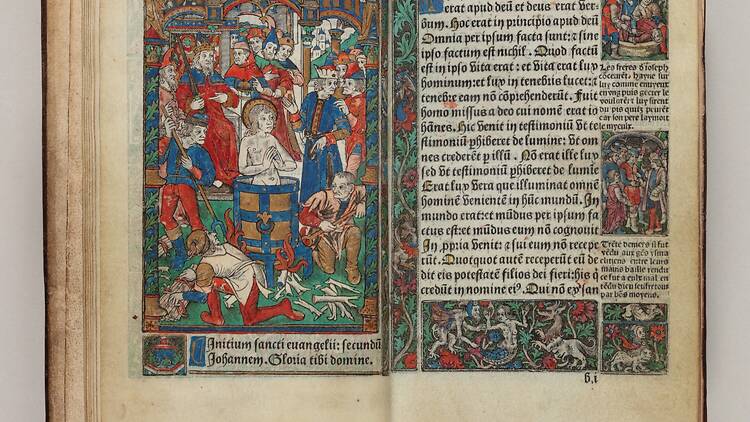 Initium sancti euangelii: secundũ
Johannem. Gloria tibi domine.
erat apud deũ et deus erat ver-
bum. Hoc erat in principio apud deũ
Omnia per ipsum facta sunt: et sine
ipso factum est nichil. Quod factũ
est in ipso vita erat: et vita erat lux
hominum: et lux in tenebris lucet: a
tenebre eam nõ cõprehenderũt. Fuit
homo missus a deo cui nomẽ erat io
hãnes. Hic venit in testimoniũ vt te
stimoniũ phiberet de lumine: vt om
nes crederẽt p illũ. Nõ erat ille lux
sed vt testimoniũ phiberet de lumĩe
Erat lux vera que illuminat omnẽ
hominẽ venientẽ in hũc mundũ. In
mundo erat: et mũdus per ipsum fa
ctus est: et mũdus eum nõ cognouit
In ppria venit: a sui eum nõ recepe
rũt. Quotquot autẽ receperũt eũ de
dit eis potestatẽ filios dei fieri: his q
credũt in nomine ei9. Qui nõ ex san
Les freres d'ioseph
cõceurẽt, hayne sur
luy comme enuyeux
en vng puis gecter le
voulurẽt luy firent
car son pere laymoit
le myeulx.
Trẽte deniers il fut
vẽdu aux
mains baille rendu
par
b.i